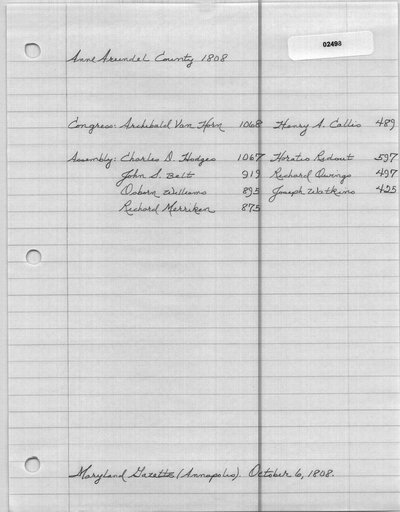 02493
Anne Arundel County 1808
Congress: Archibald Van Horn 1068 Henry A. Callis 489
Assembly: Charles D. Hodges 1067 Horatio Ridout 597
John S. Belt 919 Richard Owings 497
Osborn Williams 895 Joseph Watkins 425
Richard Merriken 875
Maryland Gazette (Annapolis). October 6, 1808.